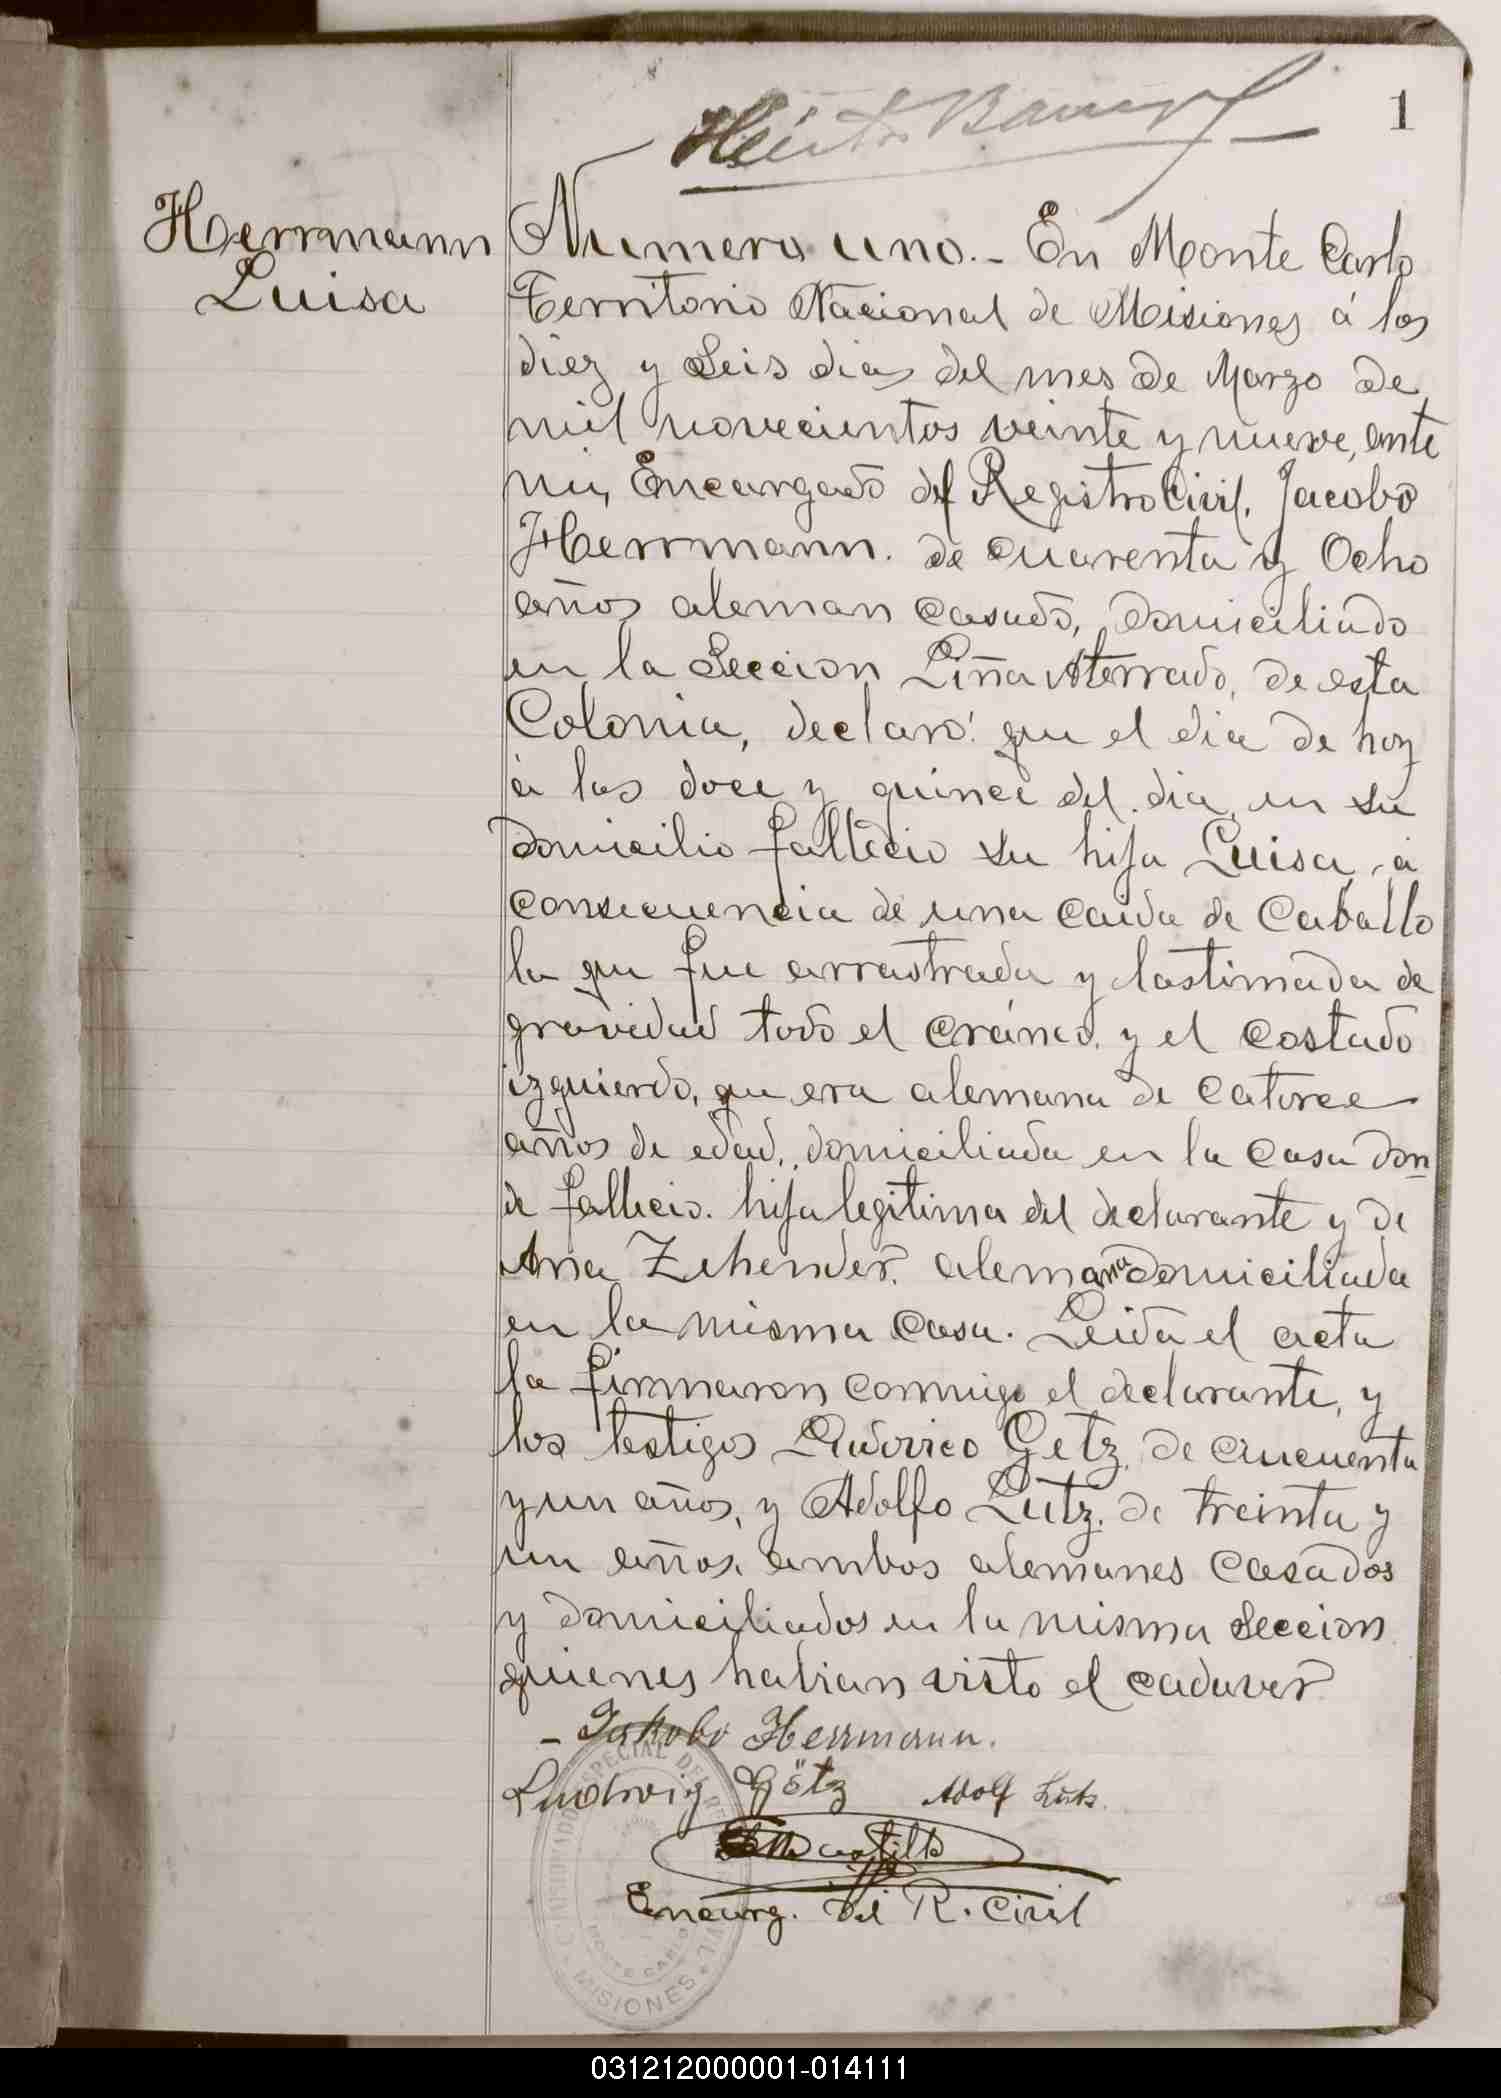 1
Herrmann
Luisa
Numero uno.- En Monte Carlo
Territorio Nacional de Misiones á los
diez y Seis dias del mes de Marzo de
mil novecientos veinte y nueve, ante
mi, Encargado del Registro Civil, Jacobo
Herrmann. de cuarenta y Ocho
años aleman casado, domiciliado
en la Seccion Liña Aterrado, de esta
Colonia, declaró: que el dia de hoy
á las doce y quince del dia, en su
domicilio fallecio su hija Luisa, á
consecuencia de una caida de Caballo
la que fue arrastrada y lastimada de
gravedad todo el cráneo, y el costado
izquierdo, que era alemana de catorce
años de edad, domiciliada en la casa don
de fallecio. hija legitima del declarante y de
Ana Zehender. alemana domiciliada
en la misma casa. Leida el acta
la firmaron conmigo el declarante, y
los testigos Ludovico Getz, de cincuenta
y un años, y Adolfo Lutz. de treinta y
un años, ambos alemanes casados
y domiciliados en la misma Seccion
quienes habian visto el cadaver.
- Jakobo Herrmann.
Ludwig Götz Adolf Lutz.
Encarg. del R. Civil
MONTE CARLO
MISIONES
031212000001-014111